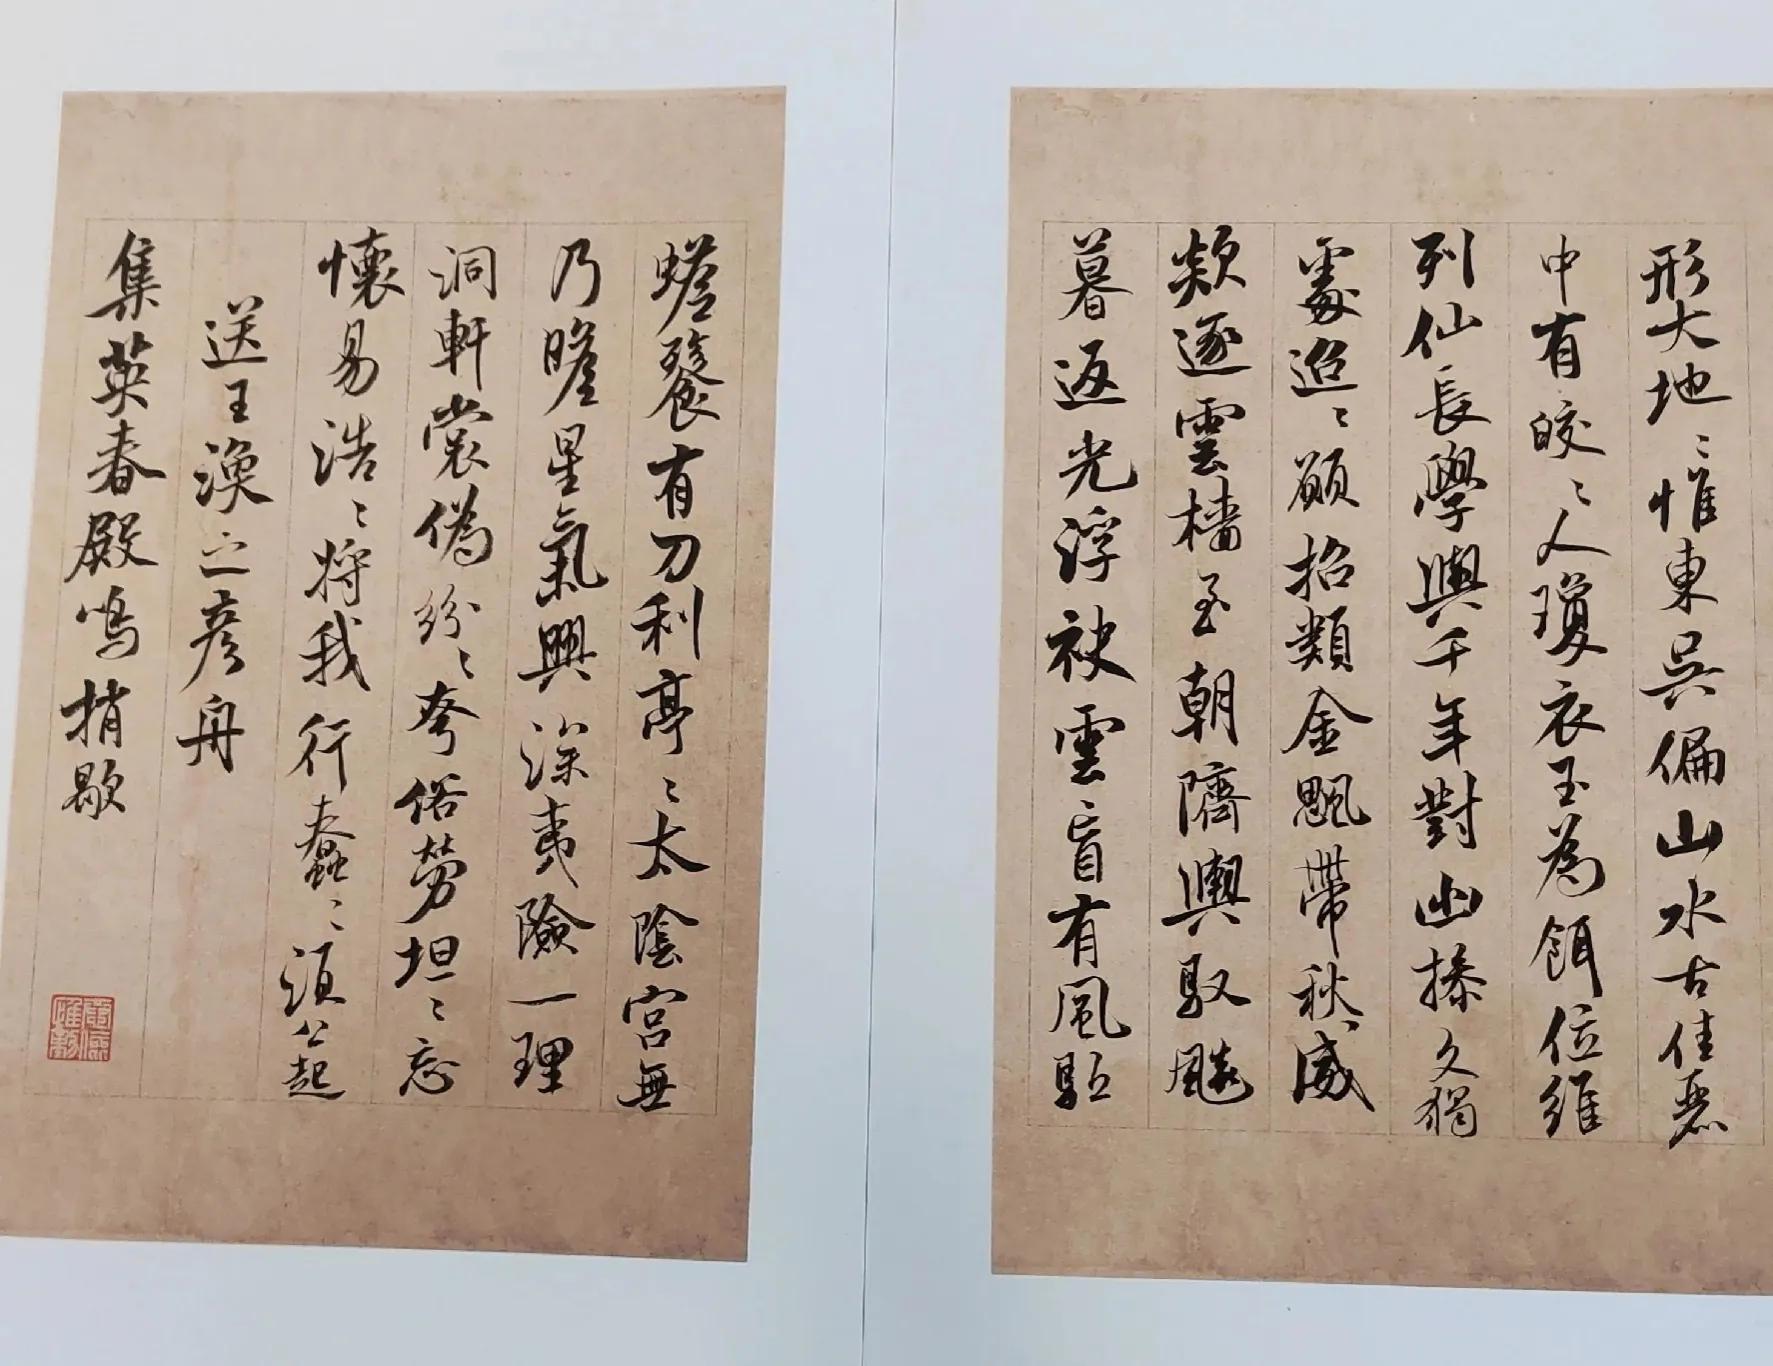 形大地〻惟東吳偏山水古佳麗
中有皎〻人瓊衣玉為餌位維
列仙長學與千年對幽操久獨
處迢〻願招類金颸帶秋威
欻逐雲檣至朝隮輿馭飈
暮返光浮袂雲盲有風驅
蟾餮有刀利亭〻太陰宮無
乃瞻星氣興深夷險一理
洞軒裳偽紛〻夸俗勞坦〻忘
懷易浩〻將我行蠢〻須公起
送王渙之彥舟
集英春殿鳴捎歇